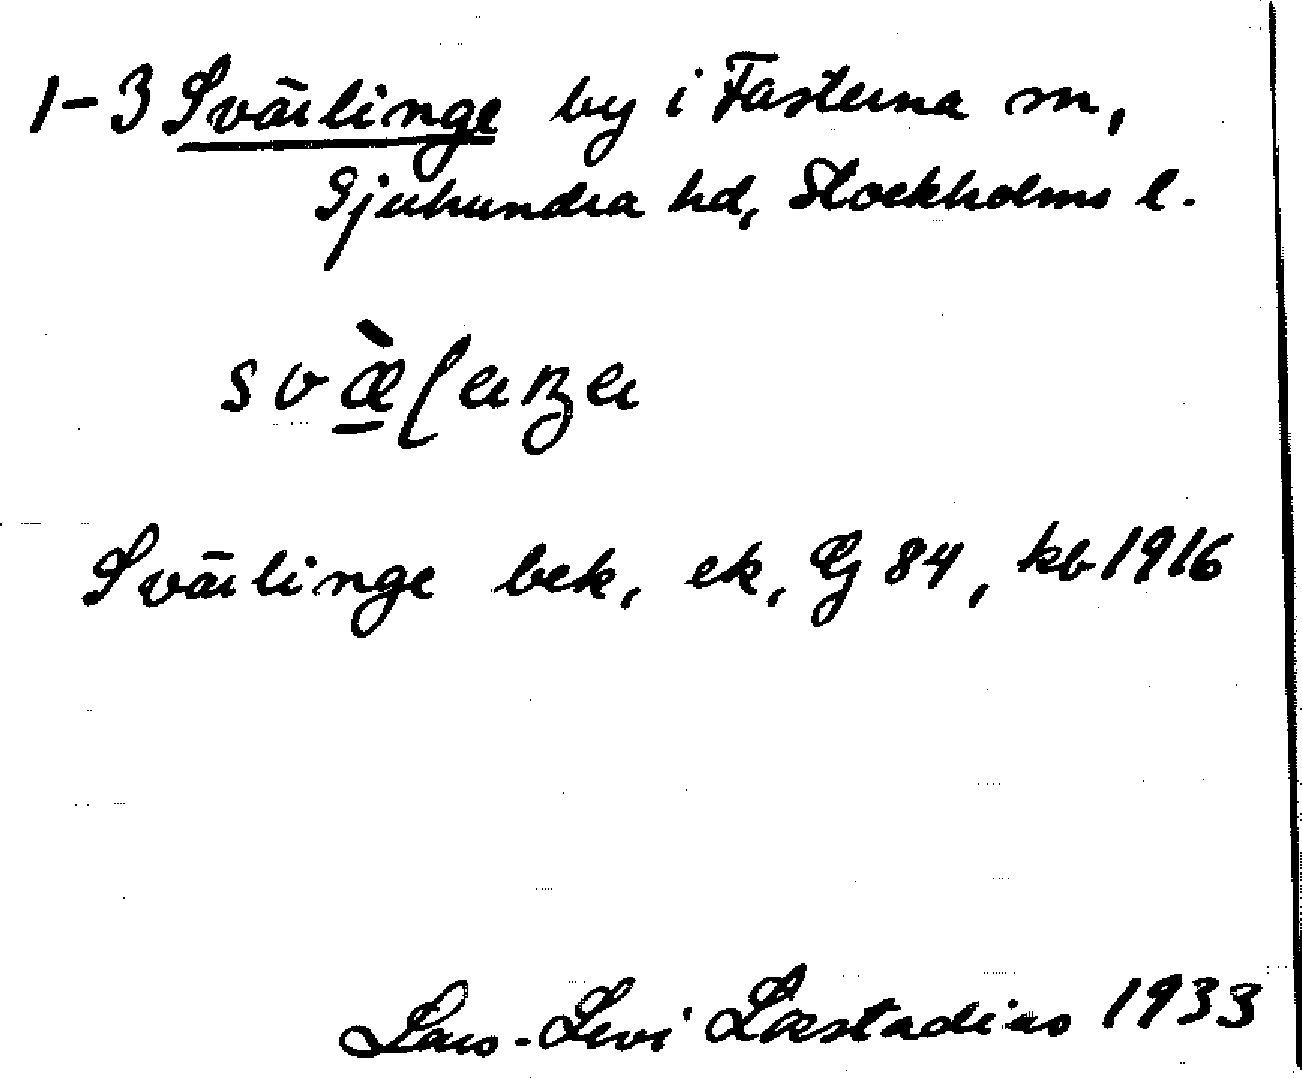 1-3 Svärlinge by i Fasterna sn,
Sjuhundra hd, Stockholms l.
Svärlinge bek, ek, GEJ 84, kb 1916
Lars-Levi Læstadius 1933